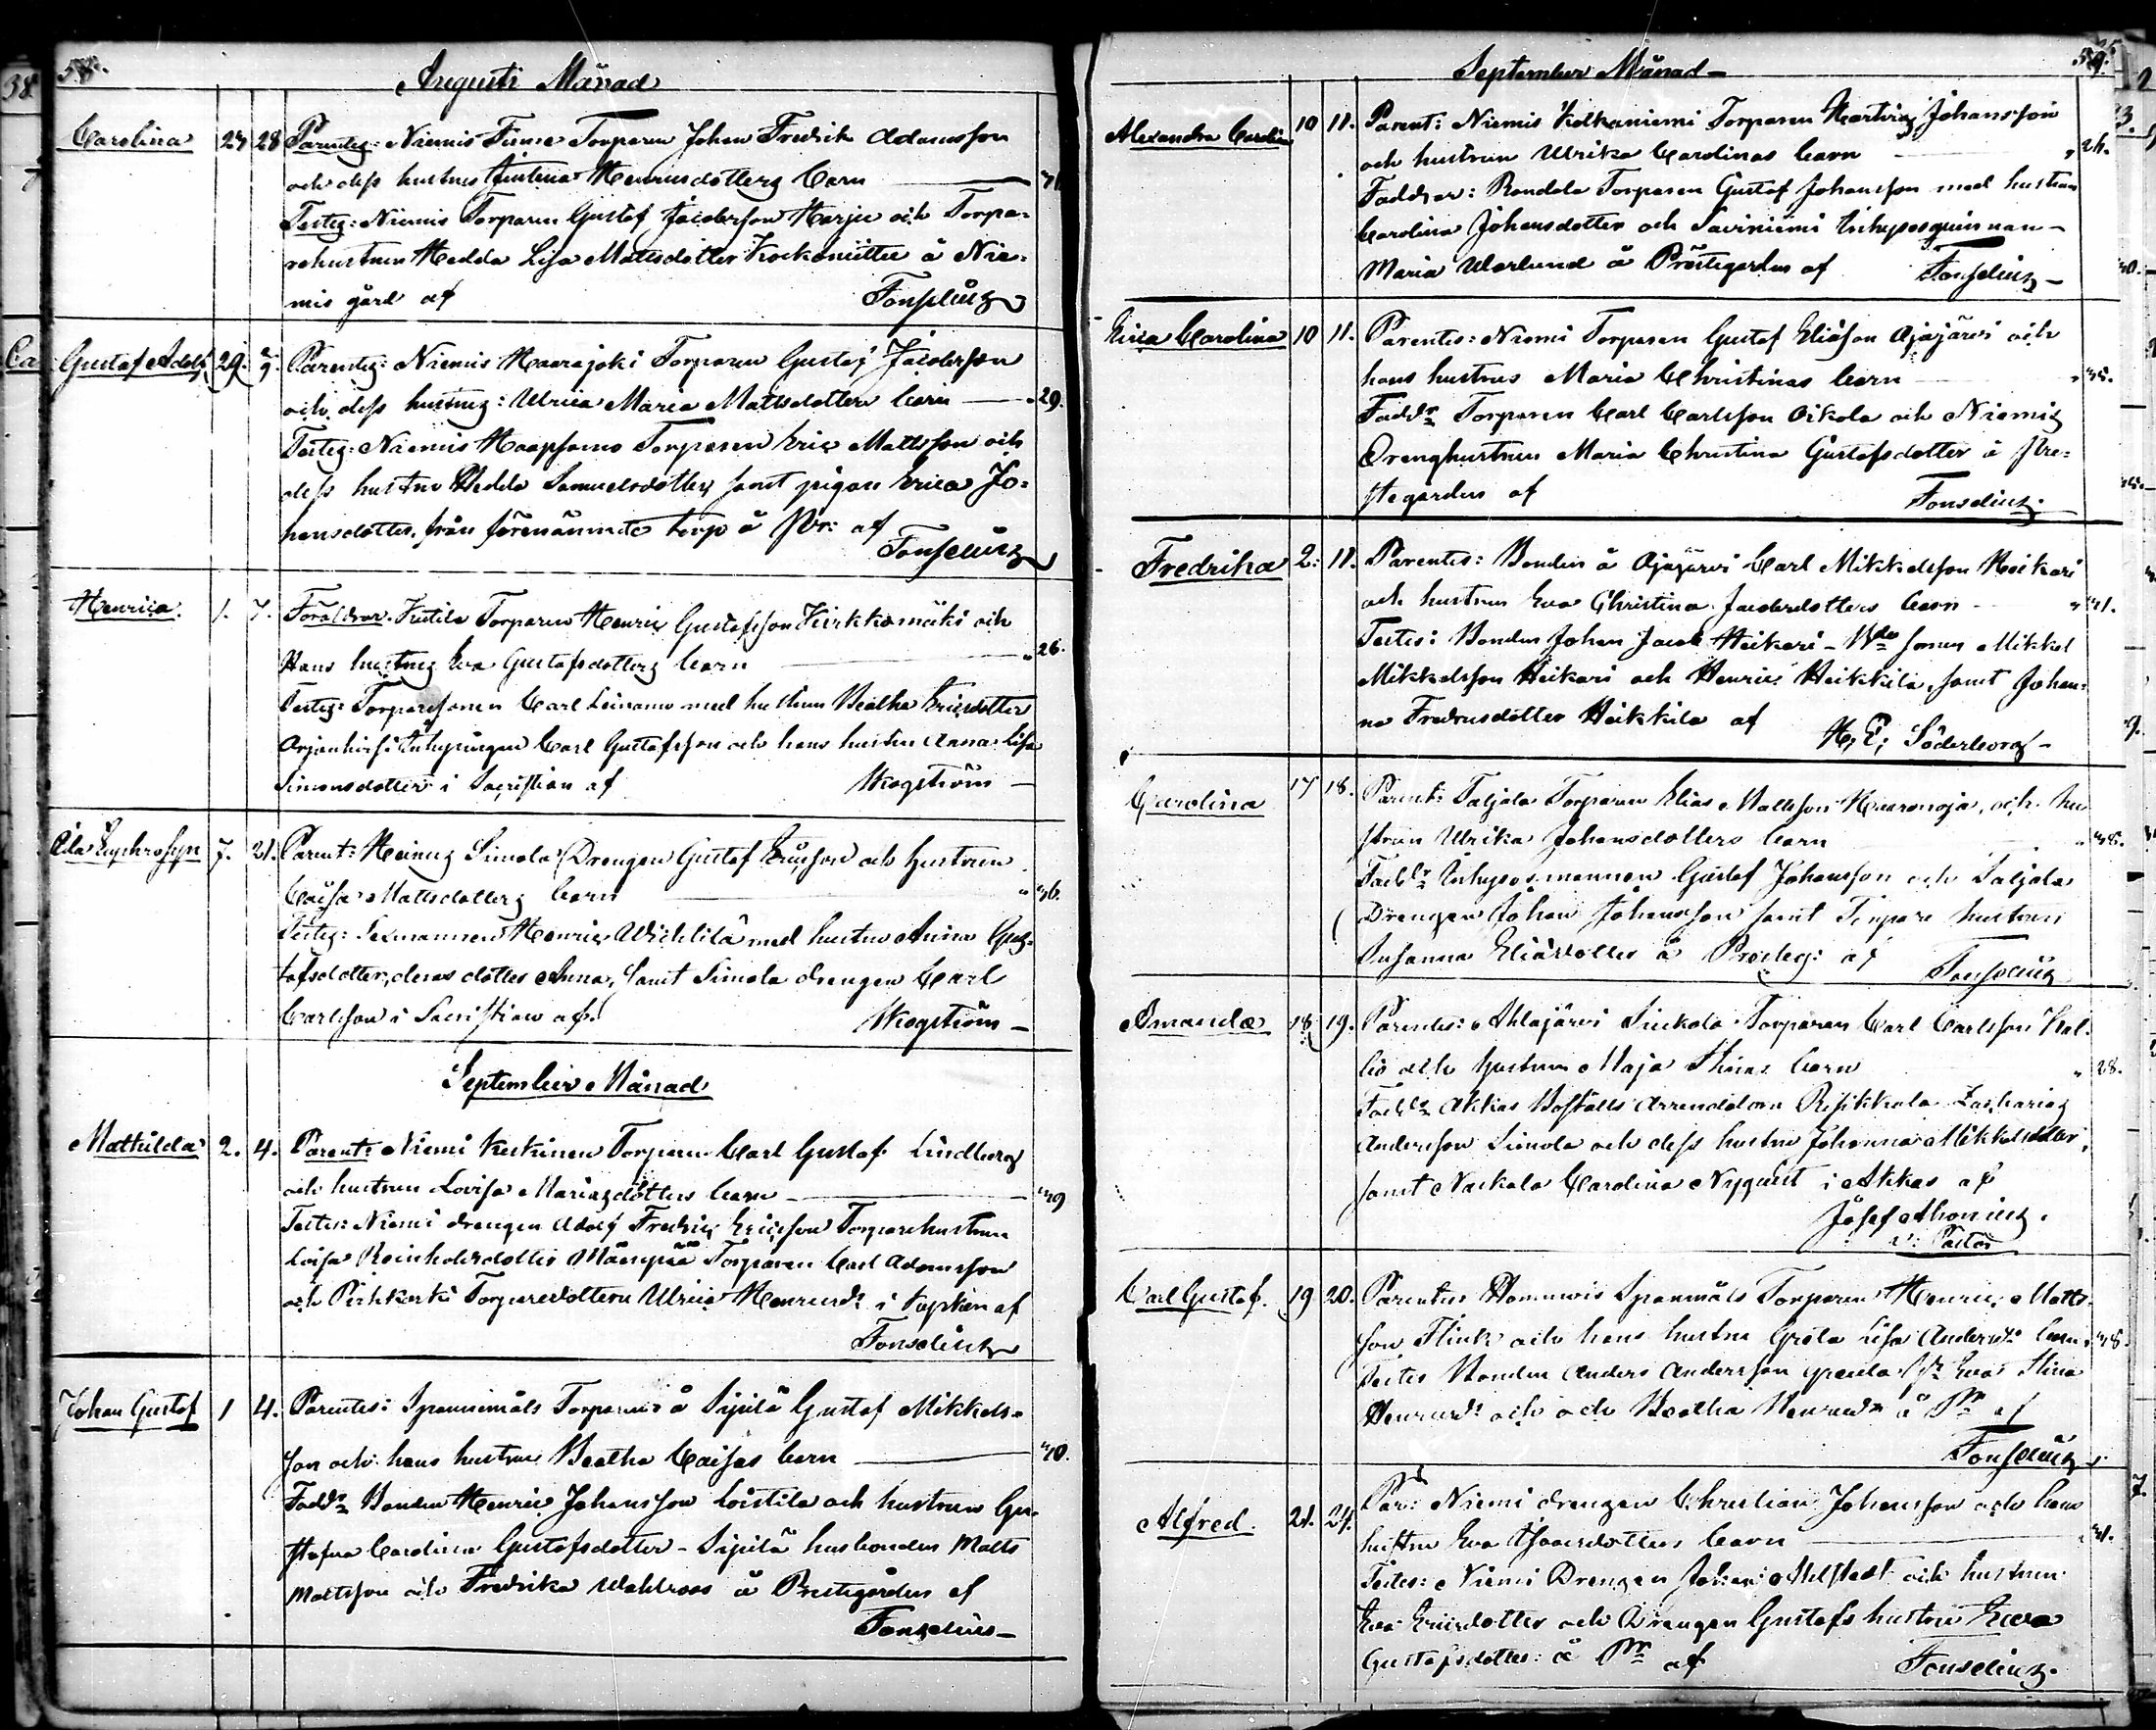 58.
Augusti Månad
Carolina 27 28 Parentes: Niemis Torparen Johan Fredrik Adamsson
och dess hustrus Henricsdotters barn
Testes: Niemis Torparen Gustaf Jacobsson Harju och Torpa-
rehustrun Hedda Lisa Mattsdotter å Nie-
mis gård af Fonselius
Gustaf Adolf 29. Parentes: Niemis Haarajoki Torparen Gustaf Jacobsson
och dess hustrus: Ulrica Maria Mattsdotters barn 29.
Testes: Niemis Torparen Eric Mattsson och
dess hustru Hedda Samuelsdotter, samt pigan Erica Jo-
hansdotter, från förenämnde torp å Pr: af
Fonselius
Henrica. 1. 7. Föräldrar. Torparen Henric Gustafsson Kirkkomäki och
Hans hustrus Eva Gustafsdotters barn 26.
Testes: Torparesonen Carl Leinamo med hustrun Beatha Ericsdotter
Inhysingen Carl Gustafsson och hans hustru Anna Lisa
Simonsdotter i Sacristian af Skogström
7. 21. Parent: Simola Drengen Gustaf Ericsson och hustrun
Caisa Mattsdotters barn 36.
Testes: Sexmannen Henric Wichtilä med hustru Anna Gus-
tafsdotter, deras dotter Anna, samt Simola drengen Carl
Carlsson i Sacristian af. Skogström
September Månad
Mathilda 2. 4. Parent: Niemi Keskinen Torparen Carl Gustaf Lindberg
och hustrun Lovisa Mariasdotters barn 39
Testes: Niemi drengen Adolf Fredric Ericsson Torparehustrun
Lovisa Reinholdsdotter Mäenpää Torparen Carl Adamsson
och Torparedottern Ulrica Henricsdr i kyrkan af
Fonselius
Johan Gustaf 1 4. Parentes: Spannmåls Torparen å Sipilä Gustaf Mikkels-
son och hans hustrus Beatha Caisas barn 40.
Faddr Bonden Henric Johansson Loistila och hustrun Gu-
stafva Carolina Gustafsdotter - Sipilä husbonden Matts
Mattsson och Fredrika Wahlroos å Prestegården af
Fonselius
September Månad 59.
Alexandra Carolina 10 11. Parent: Niemis Kolkaniemi Torparen Hartvig Johansson
och hustrun Ulrika Carolinas barn 26.
Faddrar: Randola Torparen Gustaf Johansson med hustrun
Carolina Johansdotter och Saviniemi Inhysesquinnan
Maria Warlund å Prestegården af Fonselius
Erica Carolina 10 11. Parentes: Niemi Torparen Gustaf Eliasson Ajajärvi och
hans hustrus Maria Christinas barn 35.
Faddr Torparen Carl Carlsson Oikola och Niemis
Drenghustrun Maria Christina Gustafsdotter å Pre-
stegården af Fonselius
Fredrika 2. 11. Parentes: Bonden å Ajajärvi Carl Mikkelsson Heikari
och hustrun Eva Christina Jacobsdotters barn 41.
Testes: Bonden Johan Jacob Heikari - Bdesonen Mikkel
Mikkelsson Heikari och Henric Heikkilä, samt Johan-
na Fredricsdotter Heikkilä af H. E. Söderborg
Carolina 17 18. Parent: Taljala Torparen Elias Mattsson Haaranoja, och hu-
strun Ulrika Johansdotters barn 38.
Faddr Inhysesmannen Gustaf Johansson och Taljala
Drengen Johan Johansson samt Torpare hustrun
Susanna Eliasdotter å Presteg: af Fonselius
Amanda 18 19. Parentes: Ahlajärvi Sinkola Torparen Carl Carlsson Kal-
lio och hustrun Maja Stinas barn 28.
Faddr Akkas Boställs Arrendatorn Zacharias
Andersson Simola och dess hustru Johanna Mikkelsdotter,
samt Nackala Carolina Nyquist i Akkas af
Josef Ahonius.
v: Pastor
Carl Gustaf. 19 20. Parentes Spanmåls Torparen Henric Matts-
son Flink och hans hustru Greta Lisa Andersdr barn 38.
Testes Bonden Anders Andersson Eva Stina
Henricsdr och och Beatha Henricsdr å Pr af
Fonselius
Alfred. 21. 24. Par: Niemi drengen Christian Johansson och hans
hustru Eva Isaacsdotters barn 31.
Testes: Niemi Drengen Johan Ahlstedt och hustrun
Eva Ericsdotter och Drengen Gustafs hustru Eva
Gustafsdotter: å Pr af Fonselius.